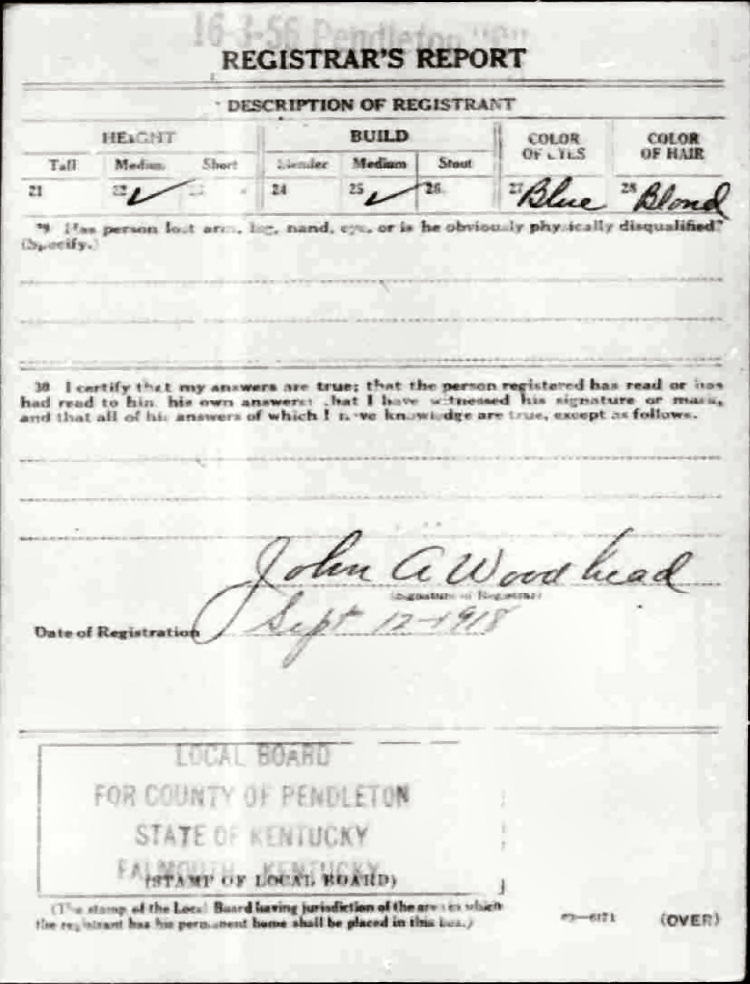 16-3-56 Pendleton "C"
REGISTRAR'S REPORT
DESCRIPTION OF REGISTRANT
HEIGHT BUILD COLOR OF EYES COLOR OF HAIR
Tall Medium Short Slender Medium Stout
21 22 ✓ 23 24 25 ✓ 26 27 Blue 28 Blond
29 Has person lost arm, leg, hand, eye, or is he obviously physically disqualified?
(Specify.)
30 I certify that my answers are true; that the person registered has read or has
had read to him his own answers; that I have witnessed his signature or mark,
and that all of his answers of which I have knowledge are true, except as follows.
John A Woodhead
(Signature of Registrar)
Date of Registration Sept 12-1918
LOCAL BOARD
FOR COUNTY OF PENDLETON
STATE OF KENTUCKY
FALMOUTH, KENTUCKY
(STAMP OF LOCAL BOARD)
(The stamp of the Local Board having jurisdiction of the area in which
the registrant has his permanent home shall be placed in this box.)
03—6171 (OVER)